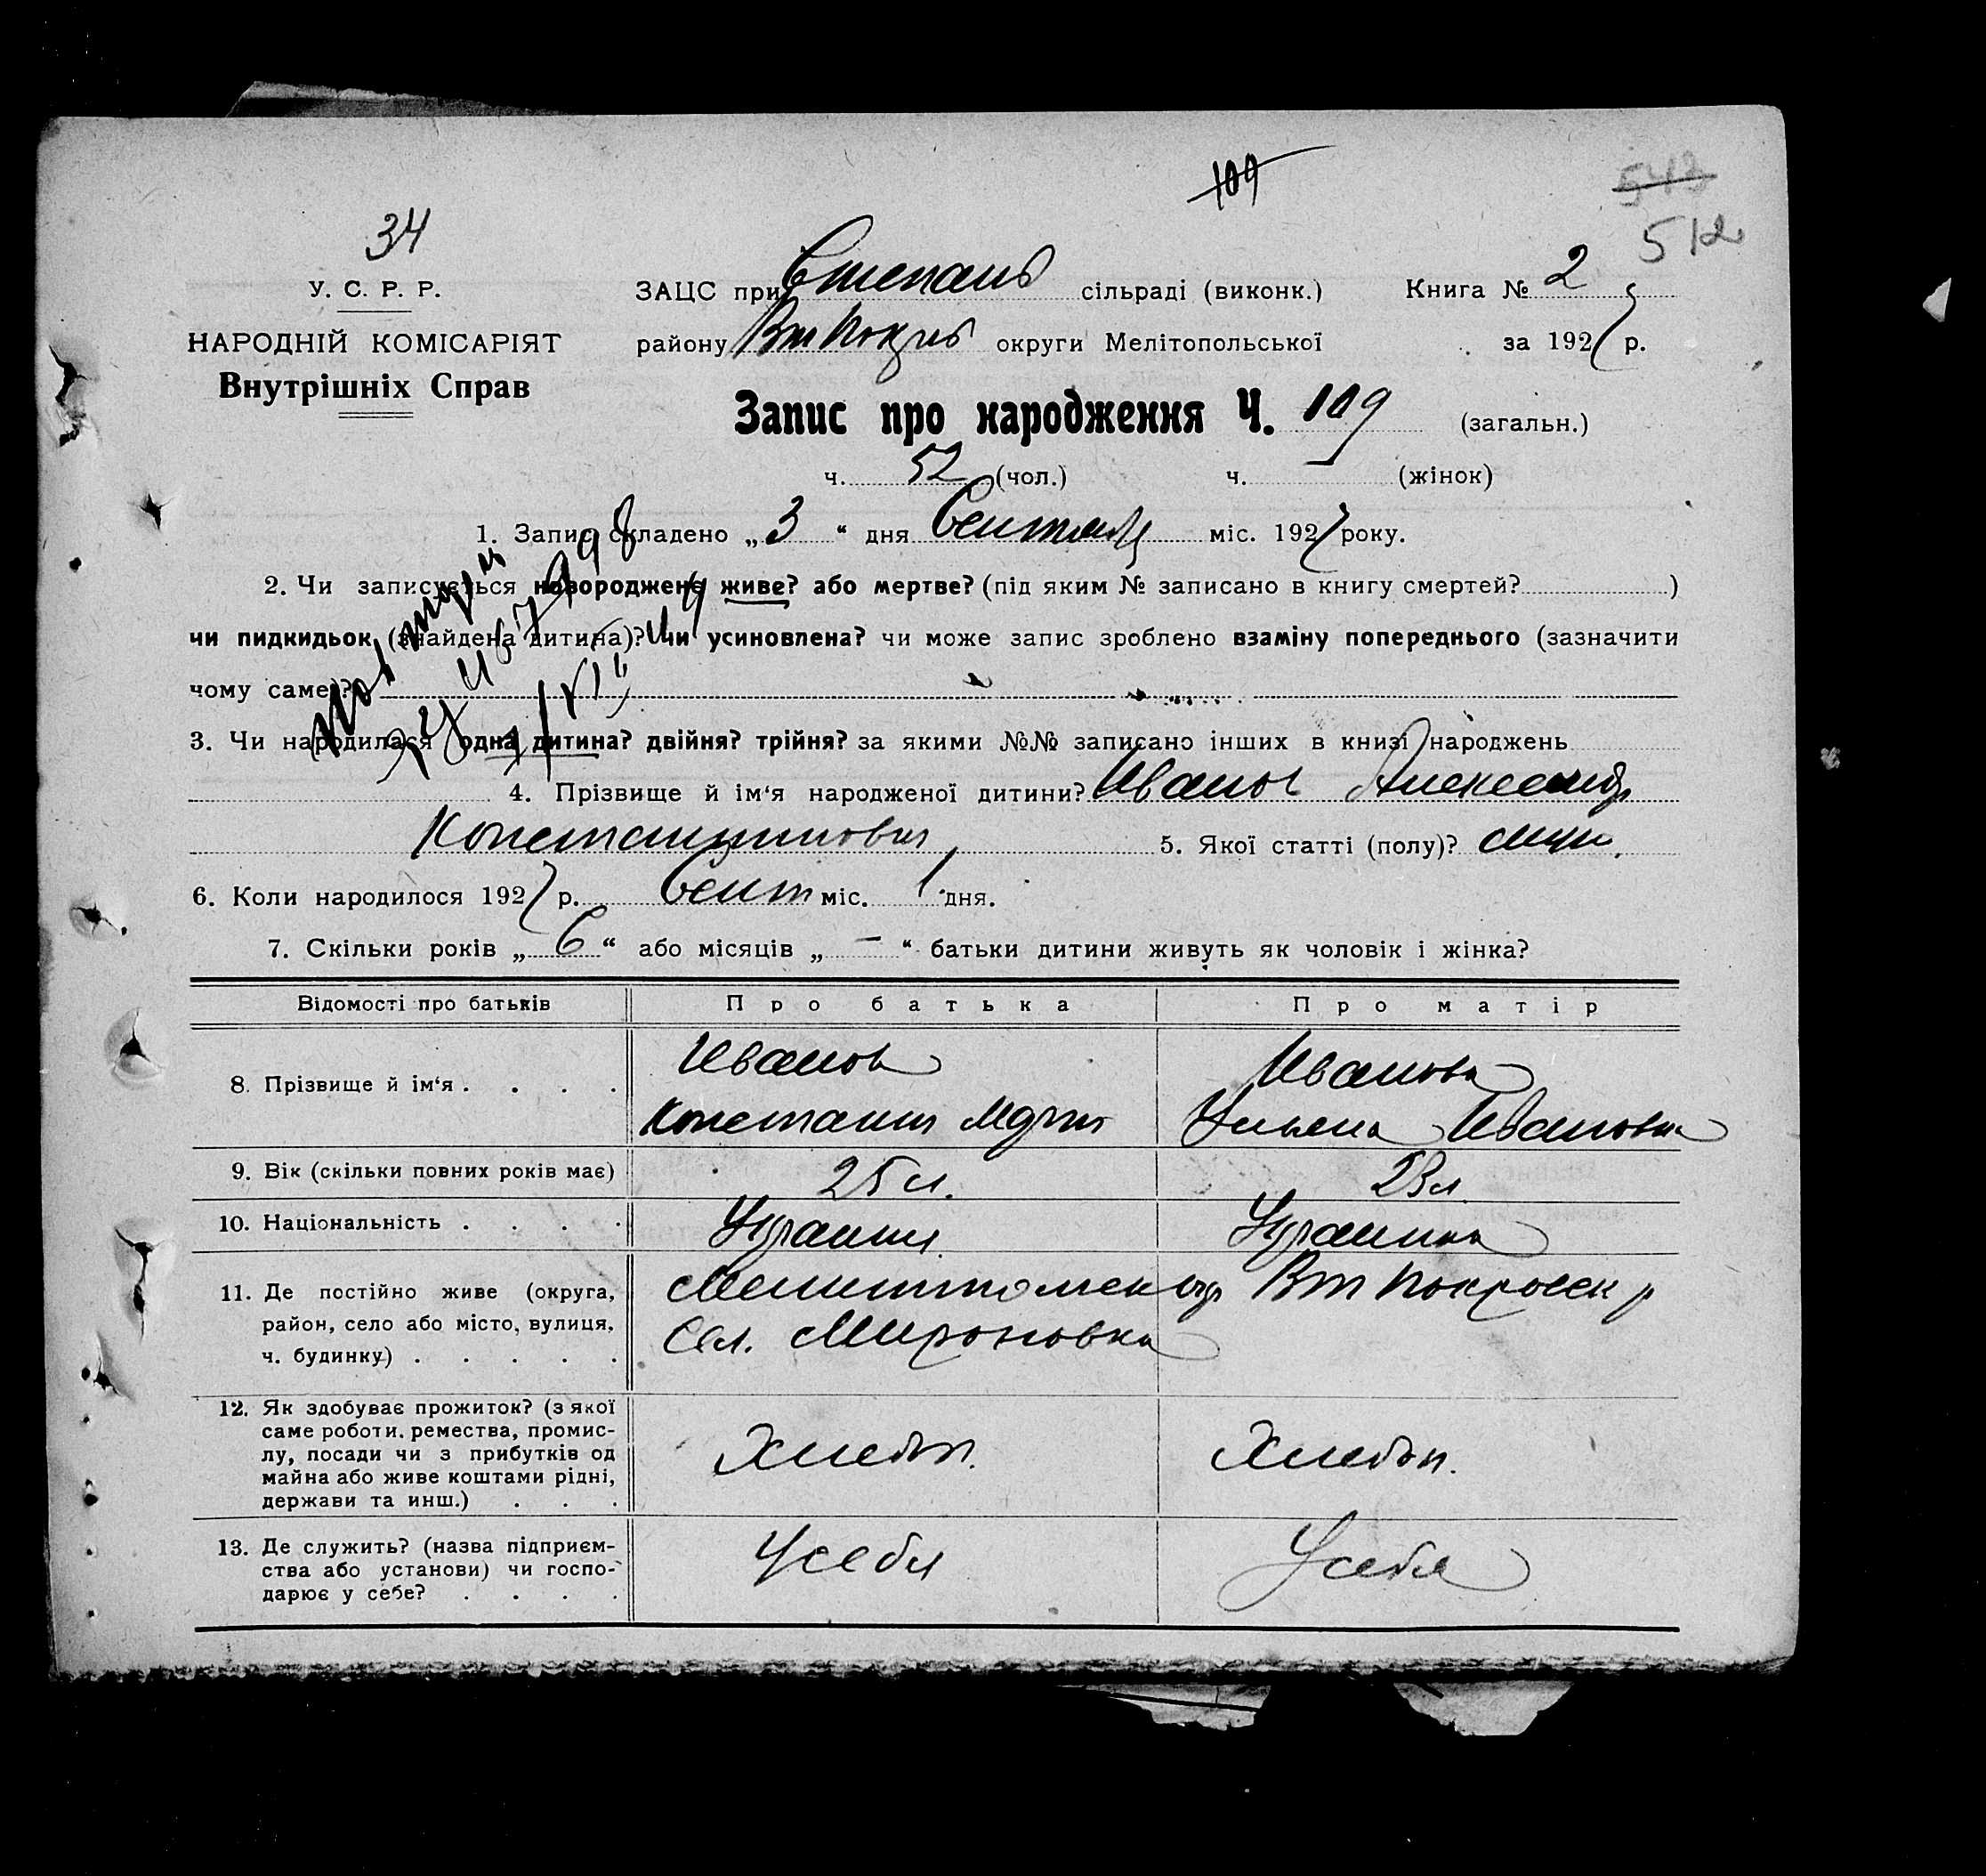 109
543
512
34
У. С. Р. Р.
НАРОДНІЙ КОМІСАРІЯТ
Внутрішніх Справ
ЗАЦС при Степанв сільраді (виконк.) Книга № 2
району Вт Покр округи Мелітопольської за 1927 р.
Запис про народження Ч. 109 (загальн.)
ч. 52 (чол.) ч. — (жінок)
1. Запис складено „ 3 “ дня Сентября міс. 1927 року.
2. Чи записується новороджене живе? або мертве? (під яким № записано в книгу смертей? )
чи пидкидьок (знайдена дитина)? чи усиновлена? чи може запис зроблено взаміну попереднього (зазначити
чому саме)?
3. Чи народилася одна дитина? двійня? трійня? за якими №№ записано інших в книзі народжень
4. Прізвище й ім‘я народженої дитини? Иванов Александр
Константинович 5. Якої статті (полу)? муж.
6. Коли народилося 1927 р. Сент міс. 1 дня.
7. Скільки років „ 6 “ або місяців „ — “ батьки дитини живуть як чоловік і жінка?
Відомості про батьків Про батька Про матір
8. Прізвище й ім‘я . . . . Иванов Иванова
Константин Ульяна Ивановна
9. Вік (скільки повних років має) 25 л. 23 л.
10. Національність . . . . Украин. Украинка
11. Де постійно живе (округа, Мелитополск окр Вт Покровск р
район, село або місто, вулиця, Сел. Мироновка
ч. будинку) . . . . .
12. Як здобуває прожиток? (з якої
саме роботи, ремества, промис-
лу, посади чи з прибутків од Хлебоп. Хлебоп.
майна або живе коштами рідні,
держави та инш.) . . .
13. Де служить? (назва підприєм- У себя У себя
ства або установи) чи госпо-
дарює у себе? . . . .